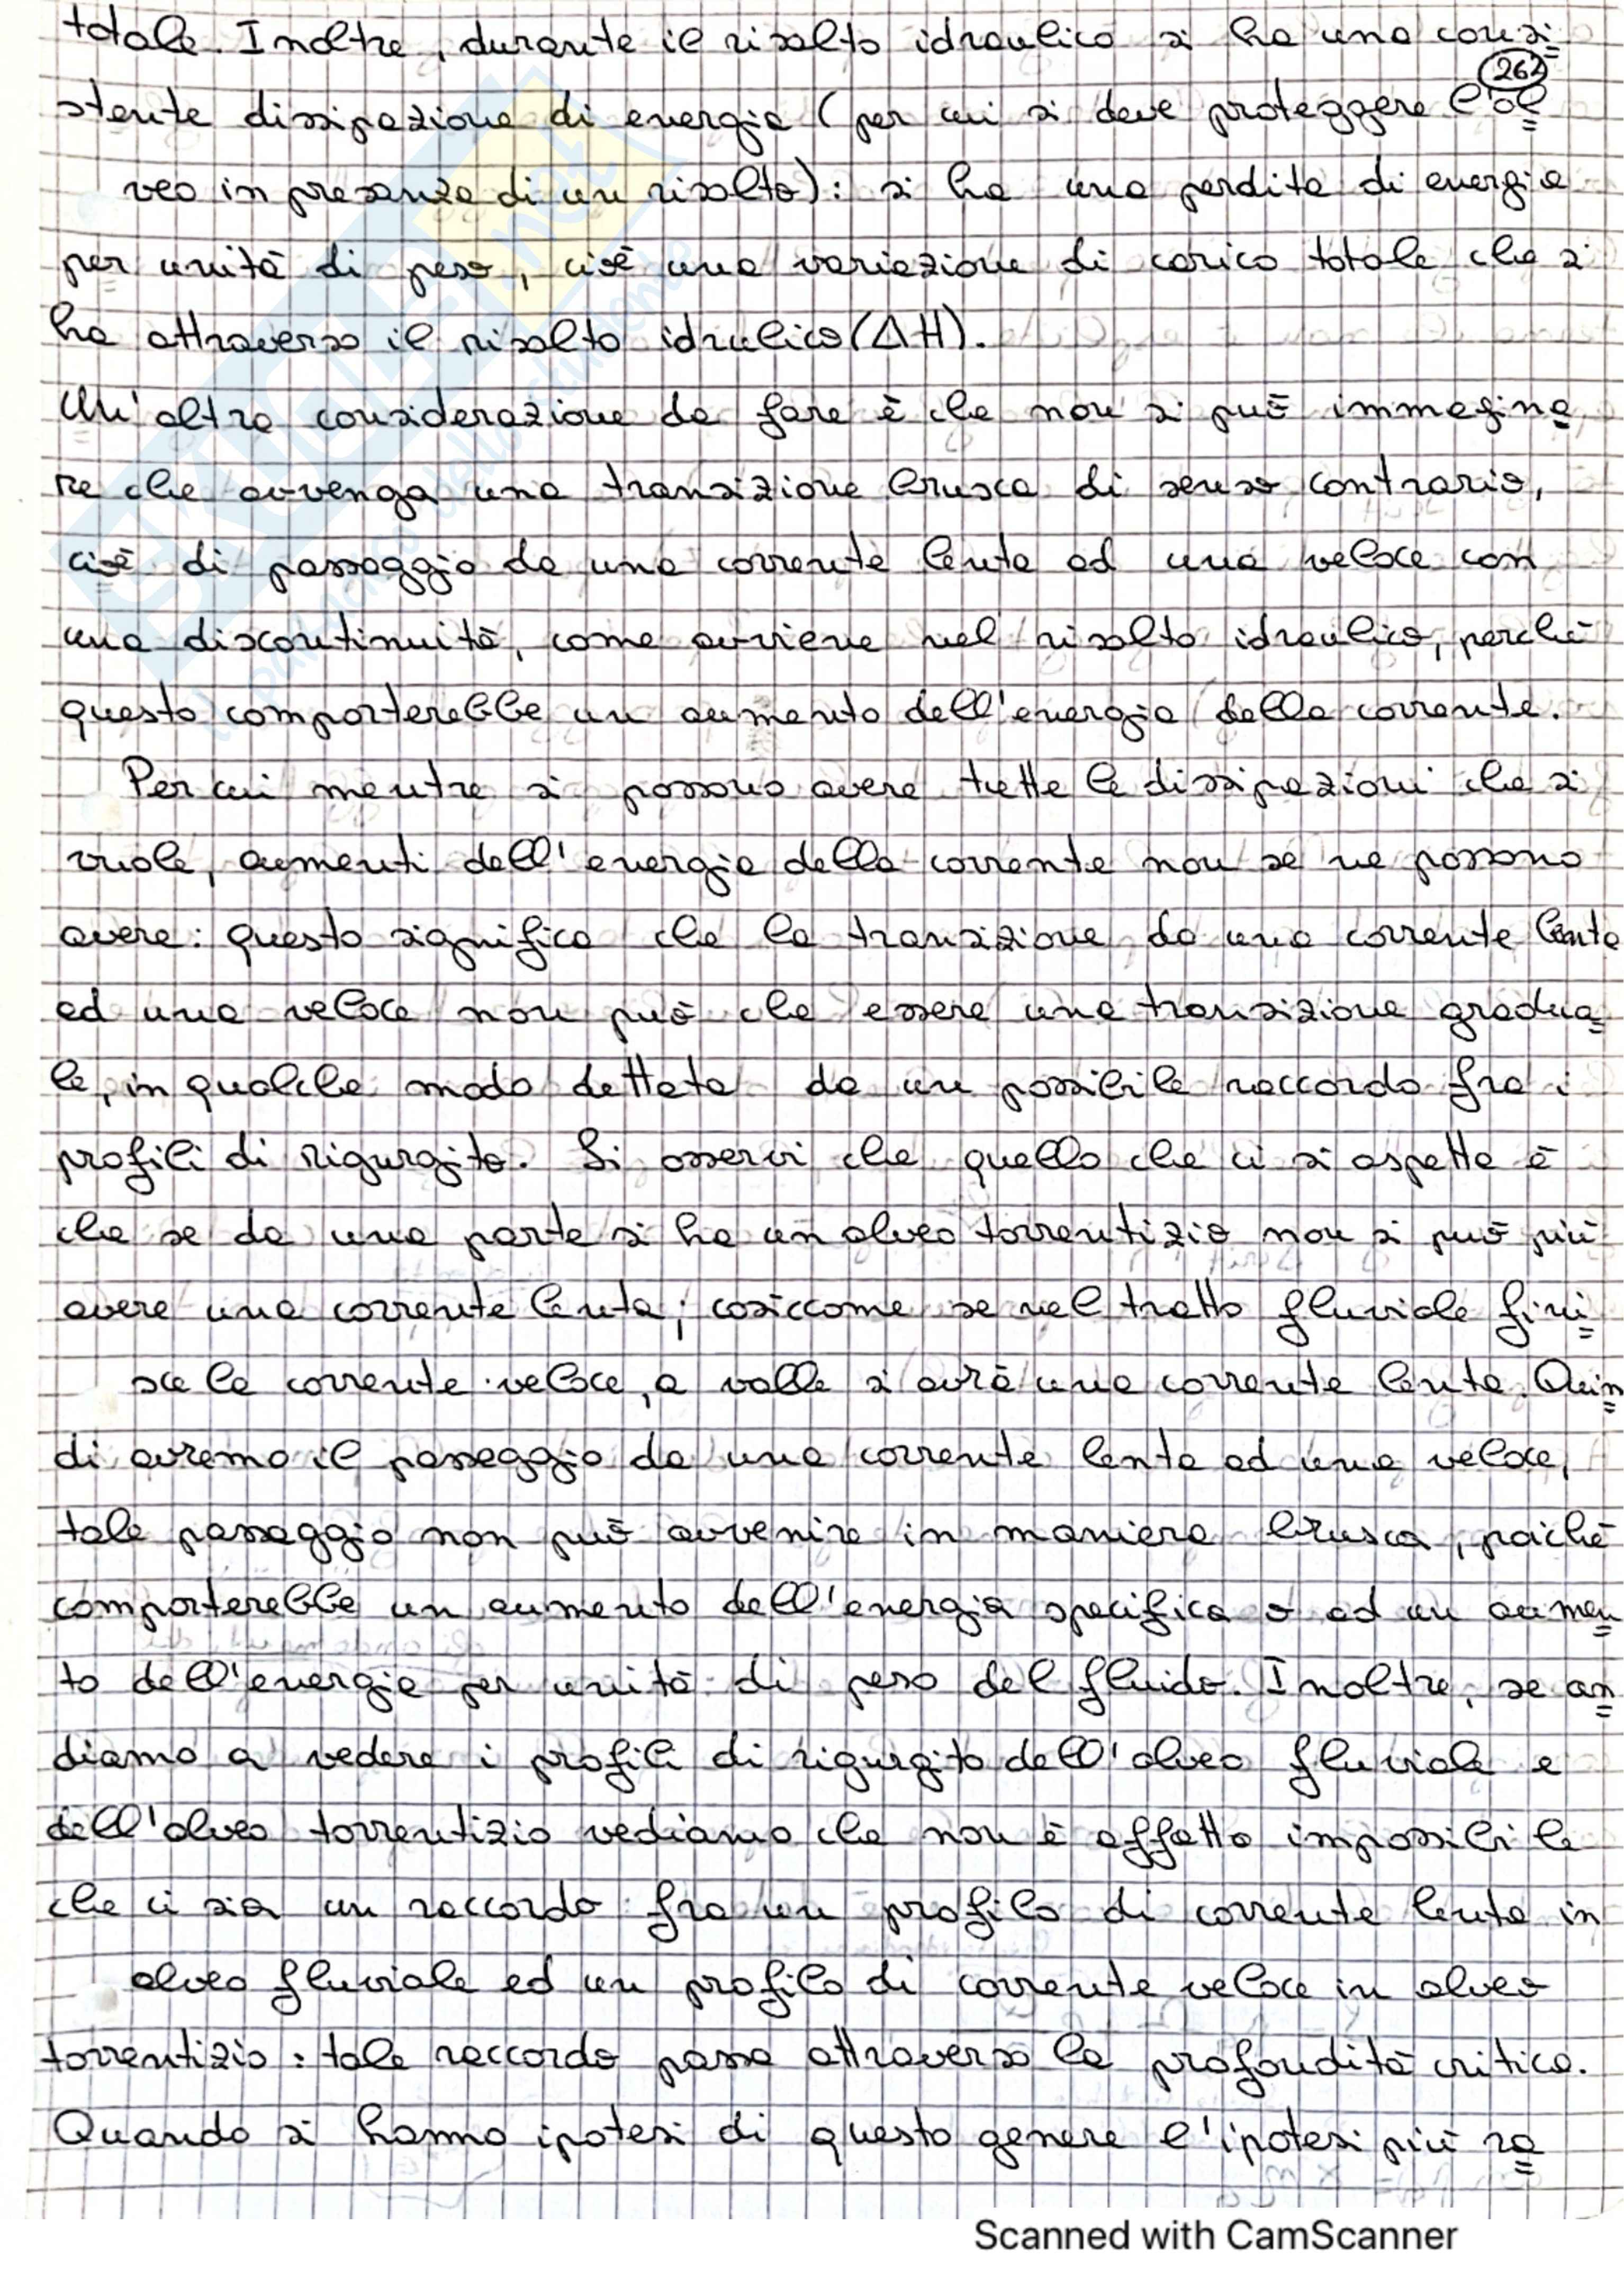 totale. Inoltre, durante il risalto idraulico si ha una consi=
262
stente dissipazione di energia (per cui si deve proteggere l'al=
veo in presenza di un risalto): si ha una perdita di energia
per unità di peso, cioè una variazione di carico totale che si
ha attraverso il risalto idrulico (ΔH).
Un'altra considerazione da fare è che non si può immagina=
re che avvenga una transizione brusca di senso contrario,
cioè di passaggio da una corrente lenta ad una veloce con
una discontinuità, come avviene nel risalto idraulico, perchè
questo comporterebbe un aumento dell'energia della corrente.
Per cui mentre si possono avere tutte le dissipazioni che si
vuole, aumenti dell'energia della corrente non se ne possono
avere: questo significa che la transizione da una corrente lenta
ad una veloce non può che essere una transizione gradua=
le, in qualche modo dettata da un possibile raccordo fra i
profili di rigurgito. Si osservi che quello che ci si aspetta è
che se da una parte si ha un alveo torrentizio non si può più
avere una corrente lenta; cosiccome se nel tratto fluviale fini=
sce la corrente veloce, a valle si avrà una corrente lenta. Quin=
di avremo il passaggio da una corrente lenta ad una veloce,
tale passaggio non può avvenire in maniera brusca, poichè
comporterebbe un aumento dell'energia specifica o ad un aumen=
to dell'energia per unità di peso del fluido. Inoltre, se an=
diamo a vedere i profili di rigurgito dell'alveo fluviale e
dell'alveo torrentizio vediamo che non è affatto impossibile
che ci sia un raccordo fra un profilo di corrente lenta in
alveo fluviale ed un profilo di corrente veloce in alveo
torrentizio: tale raccordo passa attraverso la profondità critica.
Quando si hanno ipotesi di questo genere l'ipotesi più ra=
SKUOLA.net
Il paradiso dello studente
Scanned with CamScanner